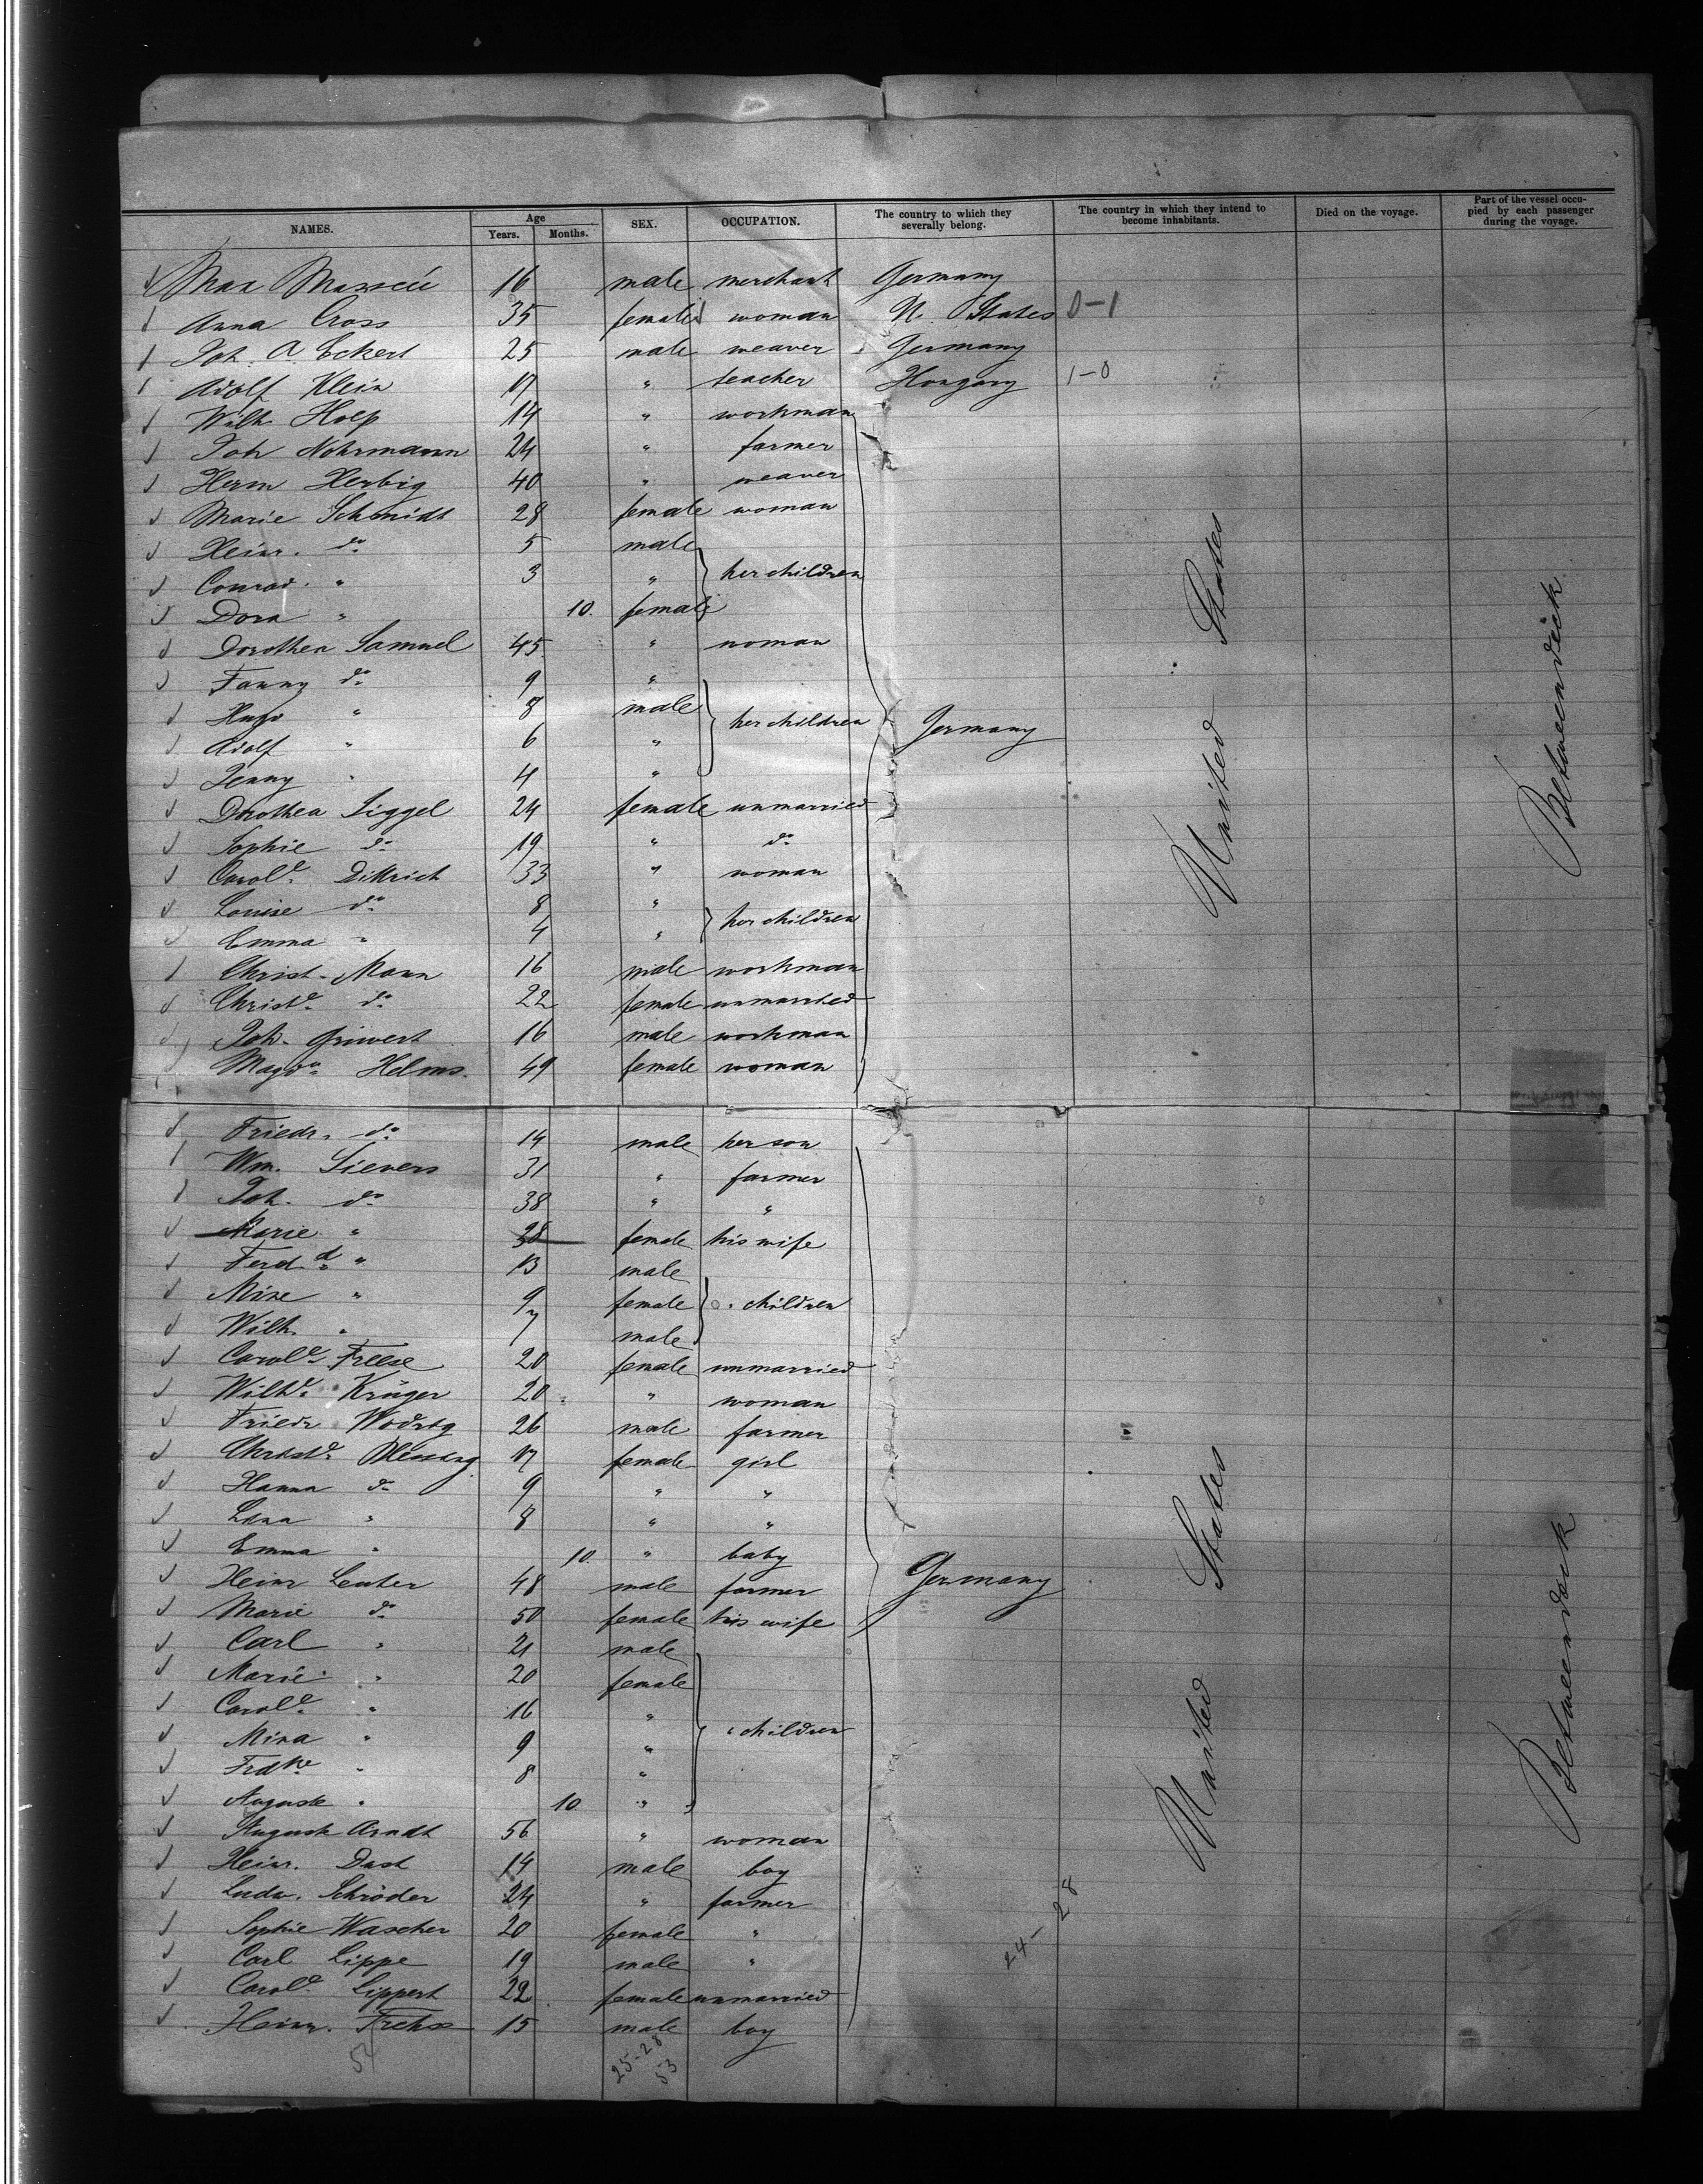 NAMES. Age Years. Months. SEX. OCCUPATION. The country to which they severally belong. The country in which they intend to become inhabitants. Died on the voyage. Part of the vessel occupied by each passenger during the voyage.
Max 16 male merchant Germany
Anna Cross 35 female woman U. States 0-1
Joh. A Eckert 25 male weaver Germany
Adolf Klein 17 " teacher Hongary 1-0
Wilh. Holp 14 " workman
Joh Nohrmann 24 " farmer
Herm Herbig 40 " weaver
Marie Schmidt 28 female woman
Heinr. do 5 male
Conrad. " 3 " her children
Dora " 10. female
Dorothea Samuel 45 " woman
Fanny do 9 "
Hugo " 8 male her children Germany
Adolf " 6 "
Jenny " 4 "
Dorothea Siggel 24 female unmarried
Sophie do 19 " do
Carole. Dittrich 33 " woman
Louise do 8 " her children
Emma " 4 "
Christ. Mann 16 male workman
Christe. do 22 female unmarried
Joh. Griwert 16 male workman
Magda. Helms. 49 female woman
United States
Betweendeck
Friedr. do 14 male her son
Wm. Sievers 31 " farmer
Joh. do 38 " "
Marie " 38 female his wife
Ferdd. " 13 male
Mine " 9 female " children
Wilh. " 7 male
Carole. Freese 20 female unmarried
Wilhe. Krüger 20 " woman
Friedr Wodrig 26 male farmer
Christe. 17 female girl
Hanna do 9 " "
Lina " 8 " "
Emma " 10. " baby
Heinr Leuter 48 male farmer Germany
Marie do 50 female his wife
Carl " 21 male
Marie " 20 female
Carole. " 16 "
Mina " 9 " " children
Frdke " 8 "
Auguste " 10 "
August Arndt 56 " woman
Heinr. Dast 14 male boy
Ludw. Schröder 24 " farmer
Sophie Wascher 20 female "
Carl Lippe 19 male "
Carole. Lippert 22 female unmarried
Heinr. 15 male boy
United States
Betweendeck
24-28
54
25-28
53